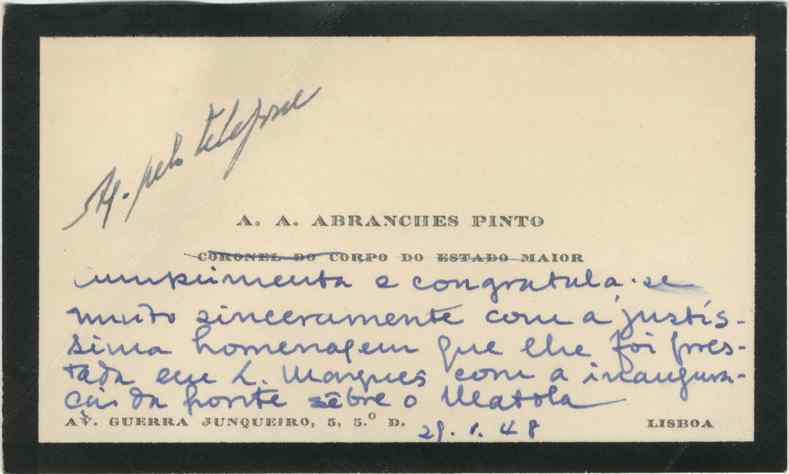 pelo telefone
A. A. ABRANCHES PINTO
CORONEL DO CORPO DO ESTADO MAIOR
cumprimenta e congratula-se
muito sinceramente com a justís-
sima homenagem que lhe foi pres-
tada em L. Marques com a inaugura-
ção da ponte sôbre o Matola
AV. GUERRA JUNQUEIRO, 5, 5.º D.
29.1.48
LISBOA